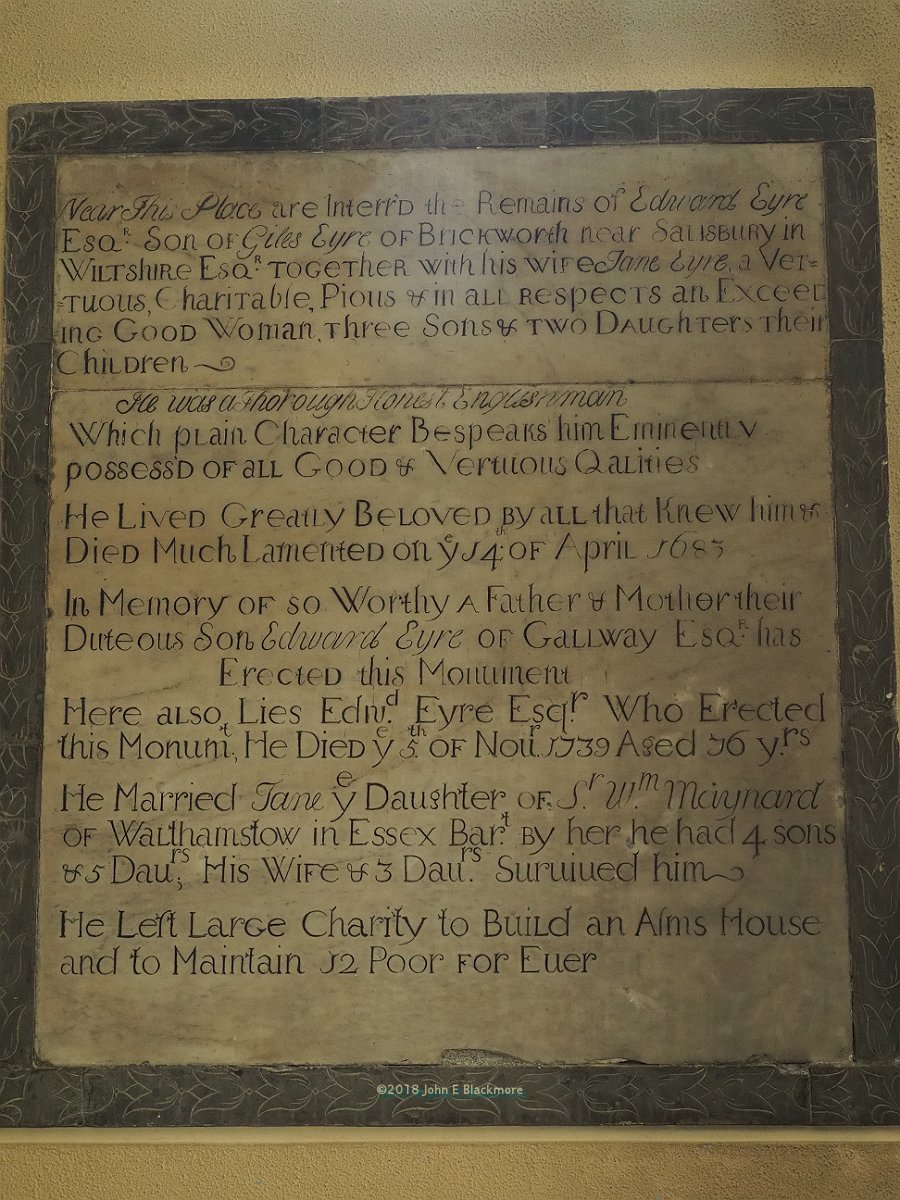 Near This Place are Interr'd the Remains of Edward Eyre
Esqr. Son of Giles Eyre of Brickworth near Salisbury in
Wiltshire Esqr. together with his wife Jane Eyre, a Ver=
=tuous, Charitable, Pious & in all respects an Exceed
ing Good Woman, three Sons & two Daughters their
Children
He was a Thorough Honest Englishman
Which plain Character Bespeaks him Eminently
possess'd of all Good & Vertuous Qalities
He Lived Greatly Beloved by all that Knew him &
Died Much Lamented on ye 14th of April 1683
In Memory of so Worthy A Father & Mother their
Duteous Son Edward Eyre of Gallway Esqr. has
Erected this Monument
Here also Lies Edw.d Eyre Esq.r Who Erected
this Monumt. He Died ye 5th of Nour. 1739 Aged 76 y.rs
He Married Jane ye Daughter of Sr. Wm. Maynard
of Walthamstow in Essex Bar.t by her he had 4 sons
& 5 Daurs; His Wife & 3 Daurs. Suruiued him
He Left Large Charity to Build an Alms House
and to Maintain 12 Poor for Euer
©2018 John E Blackmore